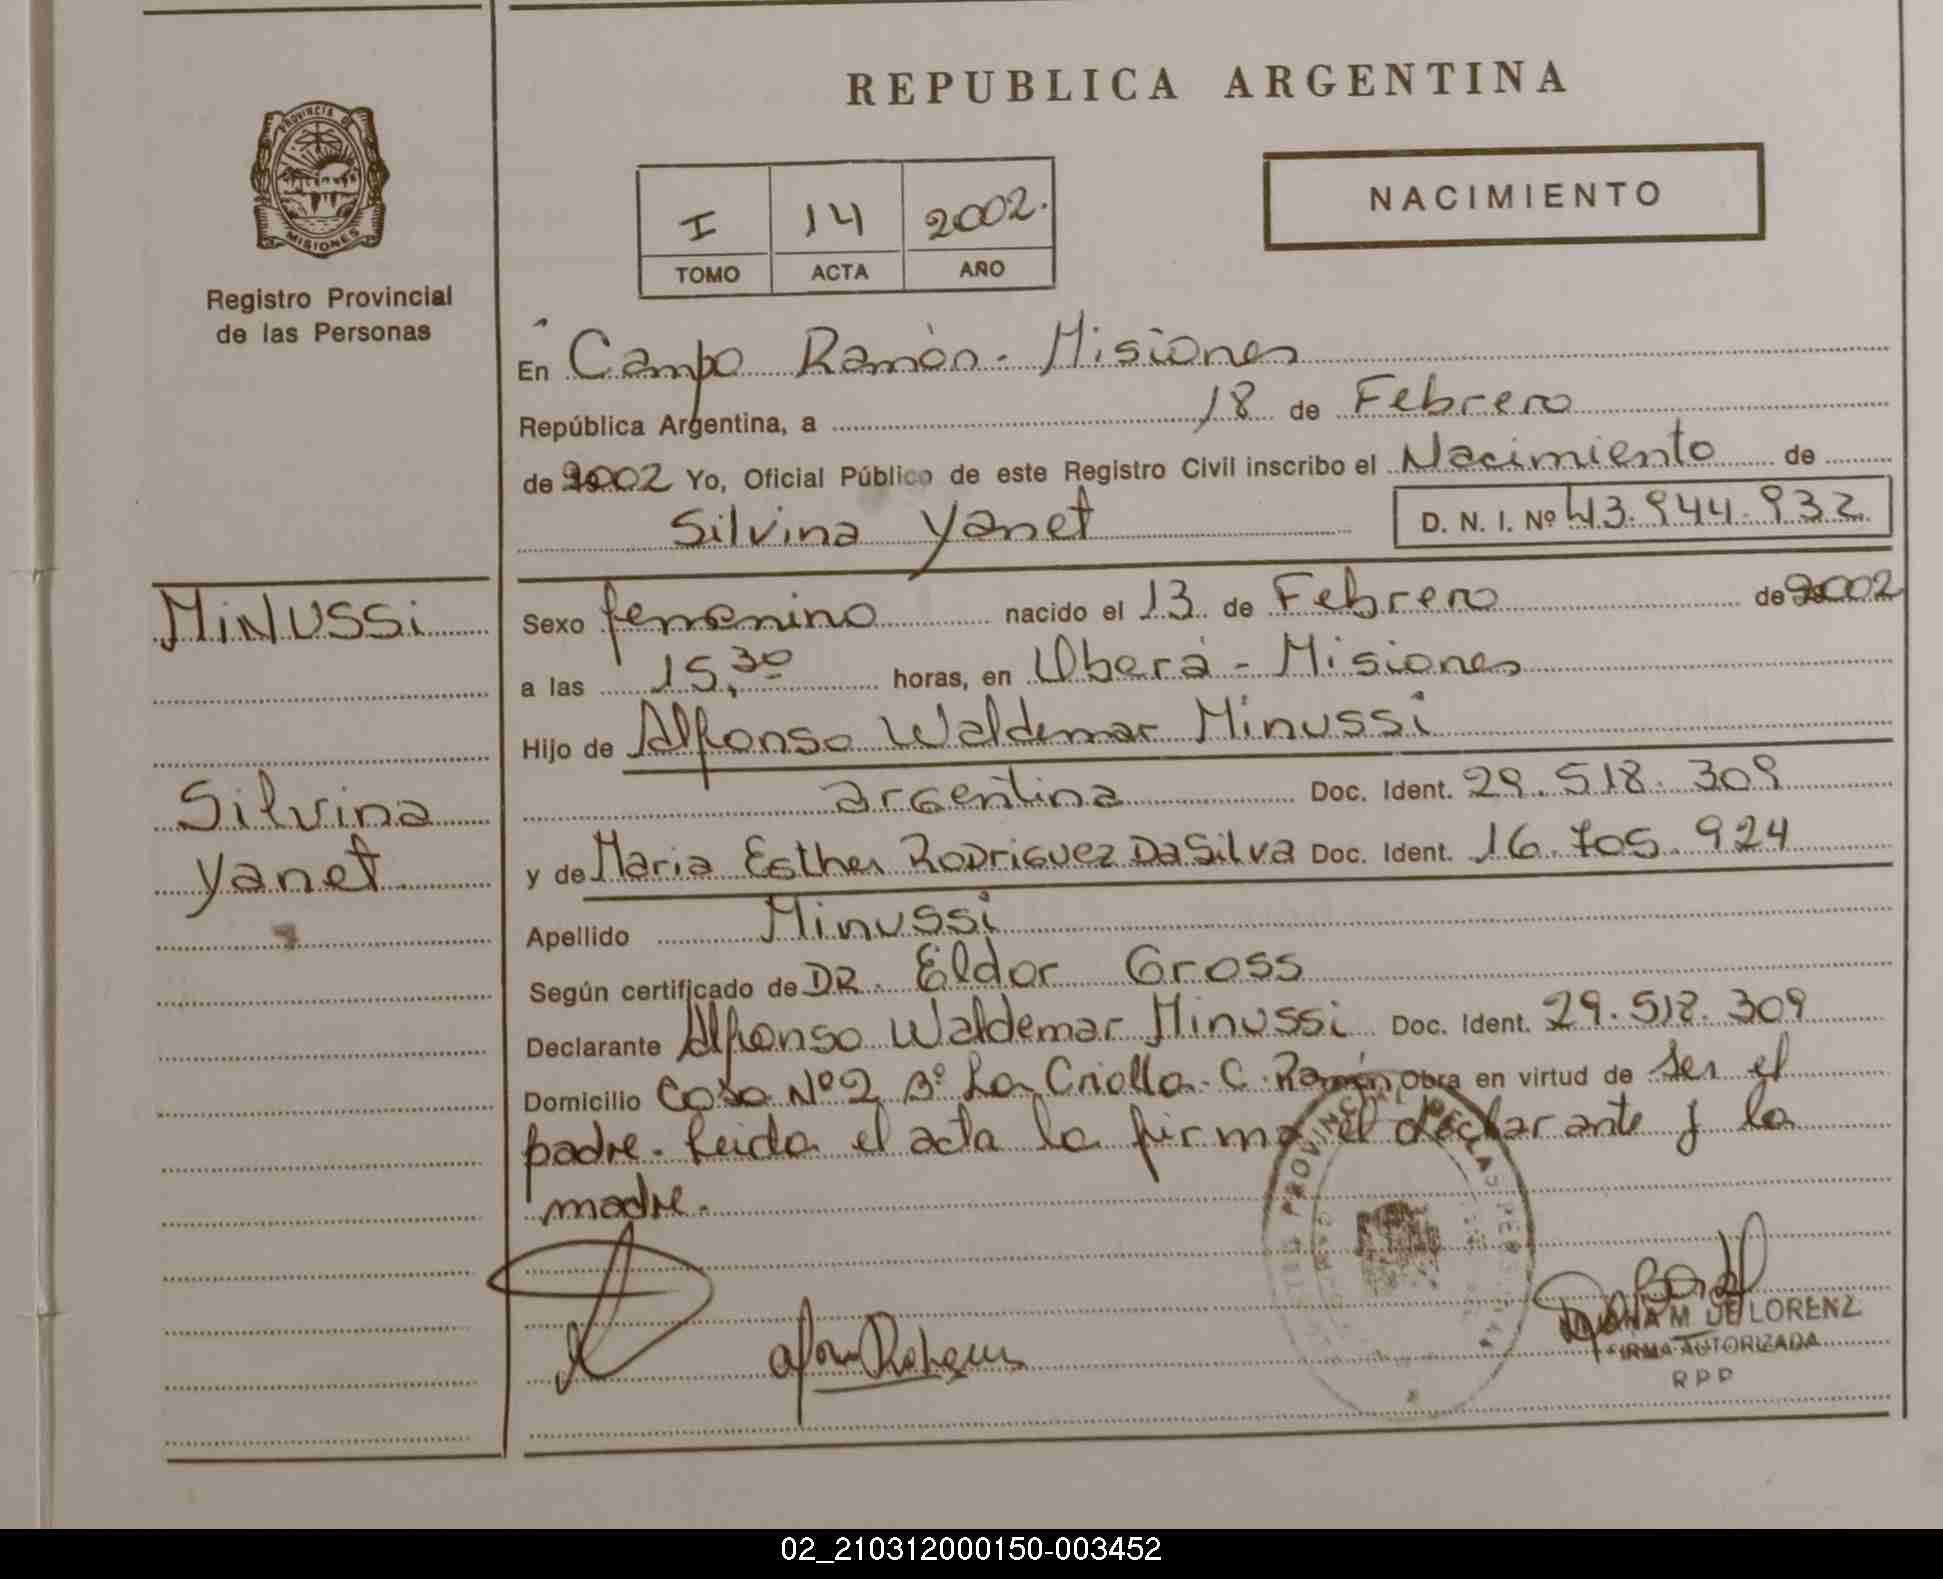 REPUBLICA ARGENTINA
PROVINCIA DE
MISIONES
Registro Provincial
de las Personas
I 14 2002.
TOMO ACTA AÑO
NACIMIENTO
En Campo Ramón - Misiones
República Argentina, a 18 de Febrero
de 2002 Yo, Oficial Público de este Registro Civil inscribo el Nacimiento de
Silvina Yanet D. N. I. Nº 43.944.932
MINUSSi
Silvina
Yanet
Sexo femenino nacido el 13 de Febrero de 2002
a las 15,30 horas, en Oberá - Misiones
Hijo de Alfonso Waldemar Minussi
argentina Doc. Ident. 29.518.309
y de Maria Esther Rodriguez DaSilva Doc. Ident. 16.705.924
Apellido Minussi
Según certificado de DR. Eldor Gross
Declarante Alfonso Waldemar Minussi Doc. Ident. 29.518.309
Domicilio Casa Nº2 Bº La Criolla - C. Ramón Obra en virtud de ser el
padre. Leida el acta la firma el declarante y la
madre.
M. DE LORENZ
FIRMA AUTORIZADA
RPP
02_210312000150-003452